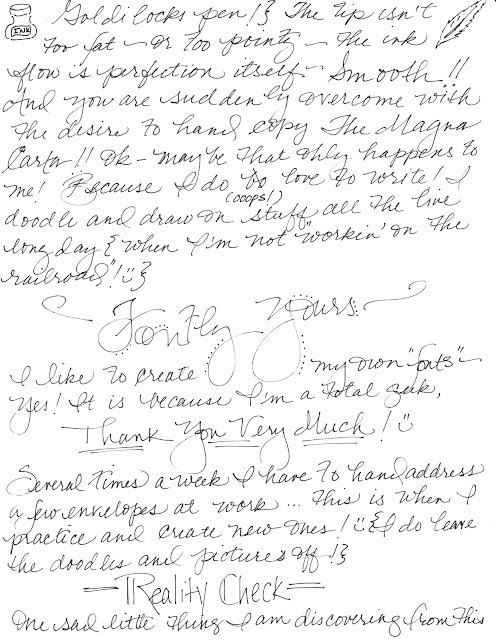 INK
Goldilocks pen!} The tip isn't
too fat - or too pointy - the ink
flow is perfection itself. Smooth!!
And you are suddenly overcome with
the desire to hand copy The Magna
Carta!! Ok - maybe that only happens to
me! Because I do do love to write! I
(ooops!)
doodle and draw on stuff all the live
long day { when I'm not "workin' on the
railroad"! }
FontFly Yours
I like to create my own "fonts" -
Yes! It is because I'm a total geek,
Thank You Very Much!
Several times a week I have to hand address
a few envelopes at work ... this is when I
practice and create new ones! {I do leave
the doodles and pictures off!}
=Reality Check=
One sad little thing I am discovering from this